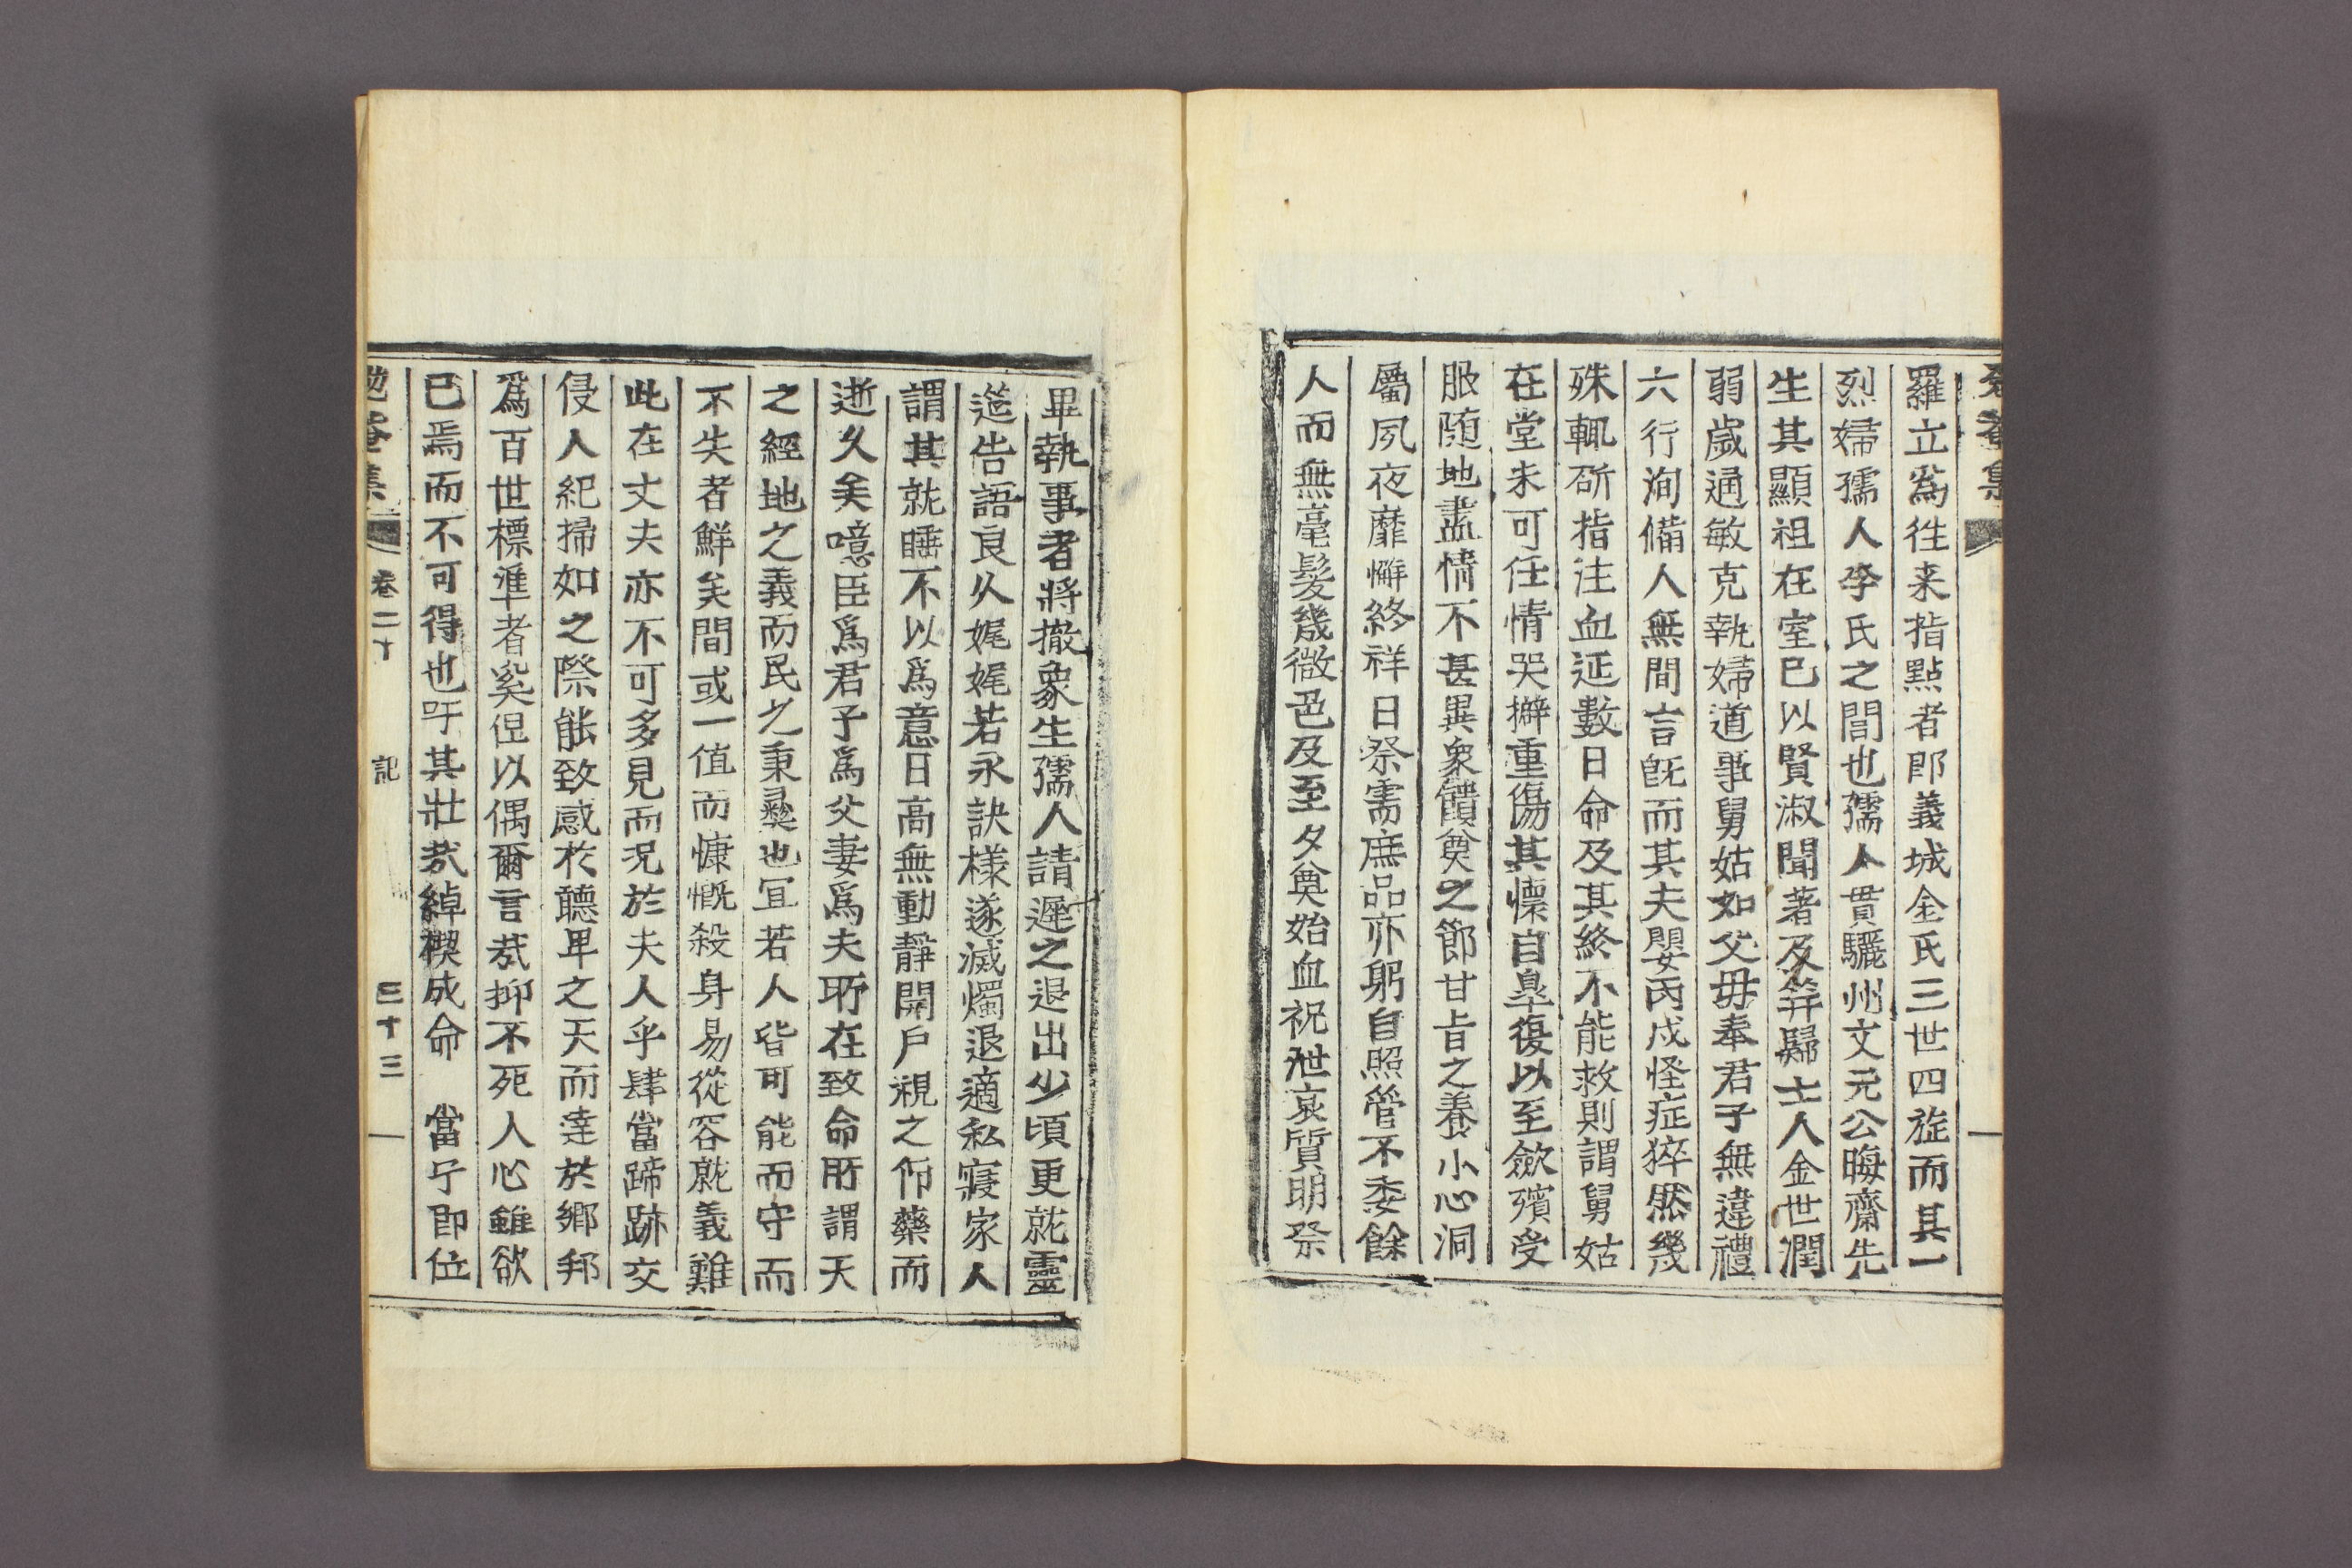 羅立爲徃来指點者卽義城金氏三世四旌而其一
烈婦孺人李氏之閭也孺人貫驪州文元公晦齋先
生其顯祖在室已以賢淑聞著及笄歸士人金世潤
弱歲通敏克執婦道事舅姑如父母奉君子無違禮
六行洵備人無間言旣而其夫嬰丙戌怪症猝然幾
殊輒斫指注血延數日命及其終不能救則謂舅姑
在堂未可任情哭擗重傷其懷自皐復以至歛殯受
服随地盡情不甚異衆饋奠之節甘旨之養小心洞
屬夙夜靡懈終祥日祭需庶品亦躬自照管不委餘
人而無毫髮幾微色及至夕奠始血祝泄哀質明祭
畢執事者將撤象生孺人請遲之退出少頃更就靈
筵告語良久娓娓若永訣樣遂滅燭退適私寢家人
謂其就睡不以爲意日高無動靜開戶視之仰藥而
逝久矣噫臣爲君子爲父妻爲夫所在致命所謂天
之經地之義而民之秉彛也宜若人皆可能而守而
不失者鮮矣間或一值而慷慨殺身易從容就義難
此在丈夫亦不可多見而况於夫人乎肆當蹄跡交
侵人紀掃如之際能致感於聽卑之天而達於鄉邦
爲百世標準者奚但以偶爾言哉抑不死人心雖欲
已焉而不可得也吁其壯哉綽楔成命　當宁卽位
菴集　卷二十　記　三十三